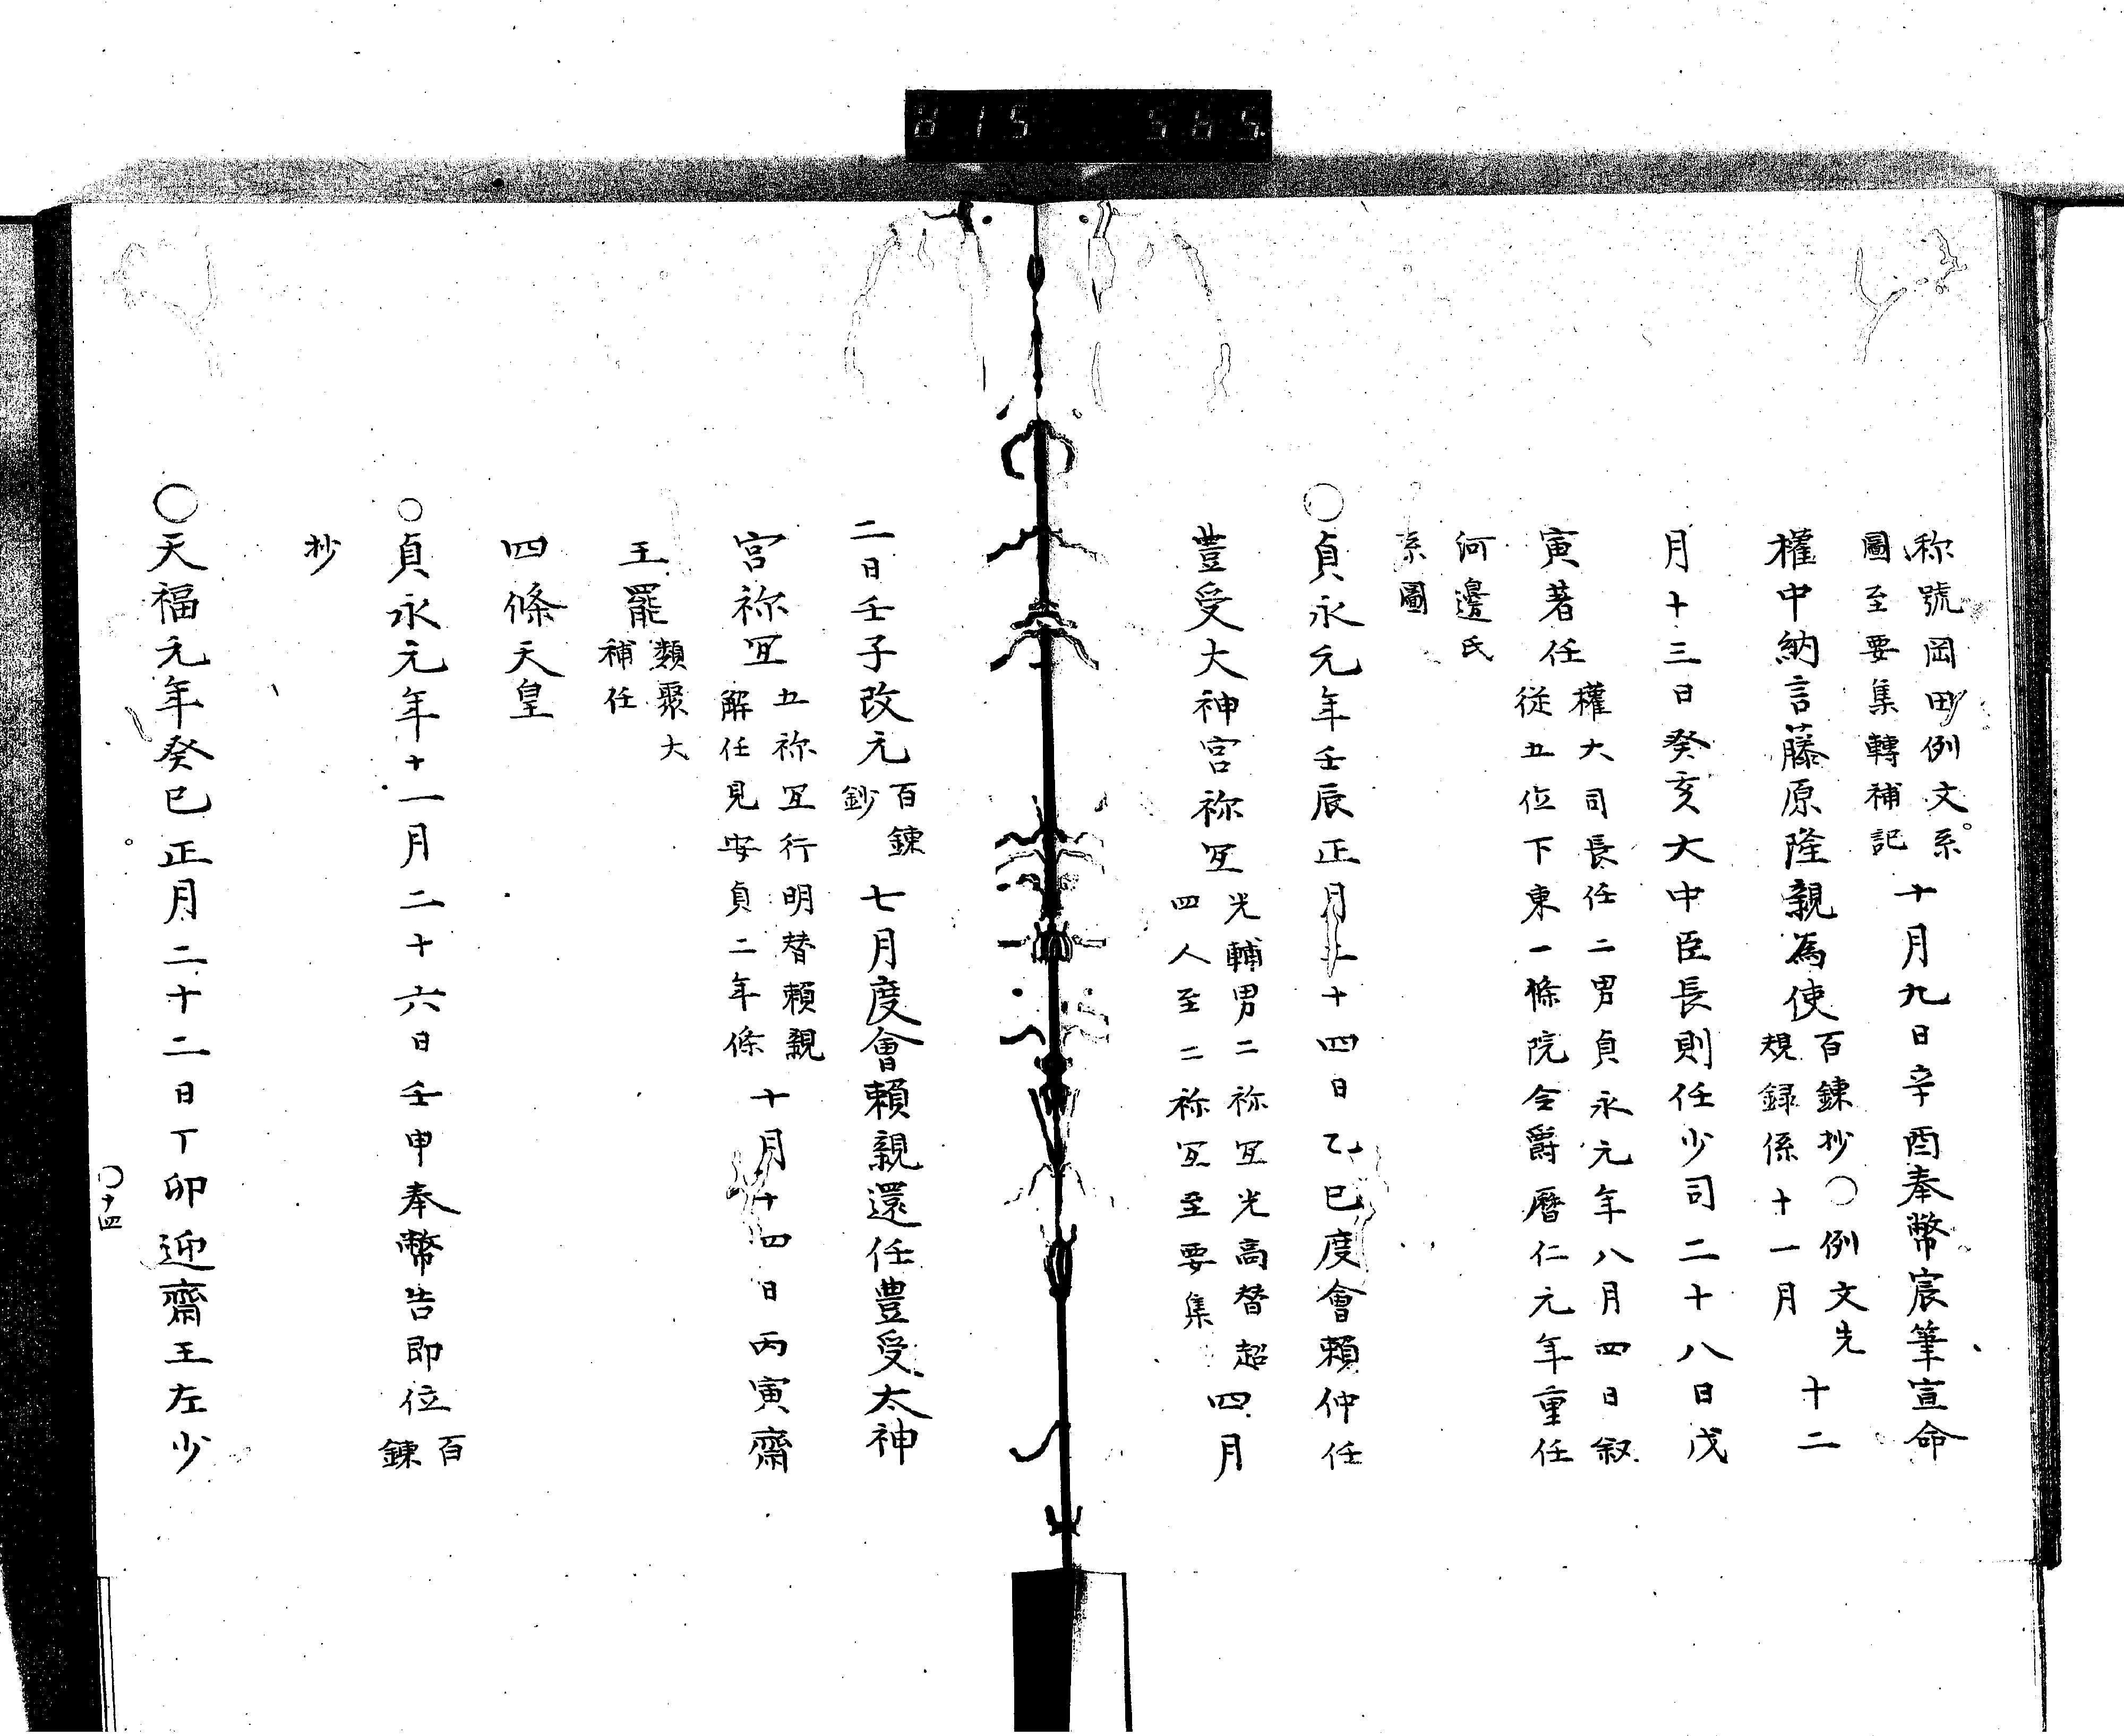 称號岡田例文系
圖至要集轉補記
十月九日辛酉奉幣宸筆宣命
權中納言藤原隆親為使
百鍊抄○例文先
規録係十一月
十二
月十三日癸亥大中臣長則任少司二十八日戊
寅著任
權大司長任二男貞永元年八月四日叙
從五位下東一條院合爵曆仁元年重任
河邊氏
系圖
○貞永元年壬辰正月二十四日乙巳度會賴仲任
豊受大神宮祢冝
光輔男二祢冝光高替超
四人至二祢冝至要集
四月
二日壬子改元
百鍊
鈔
七月度會賴親還任豊受太神
宮祢冝
五祢冝行明替賴親
解任見安貞二年條
十月十四日丙寅齋
王罷
類聚大
補任
四條天皇
○貞永元年十一月二十六日壬申奉幣告即位
百
鍊
抄
○天福元年癸巳正月二十二日丁卯迎齋王左少
○十四